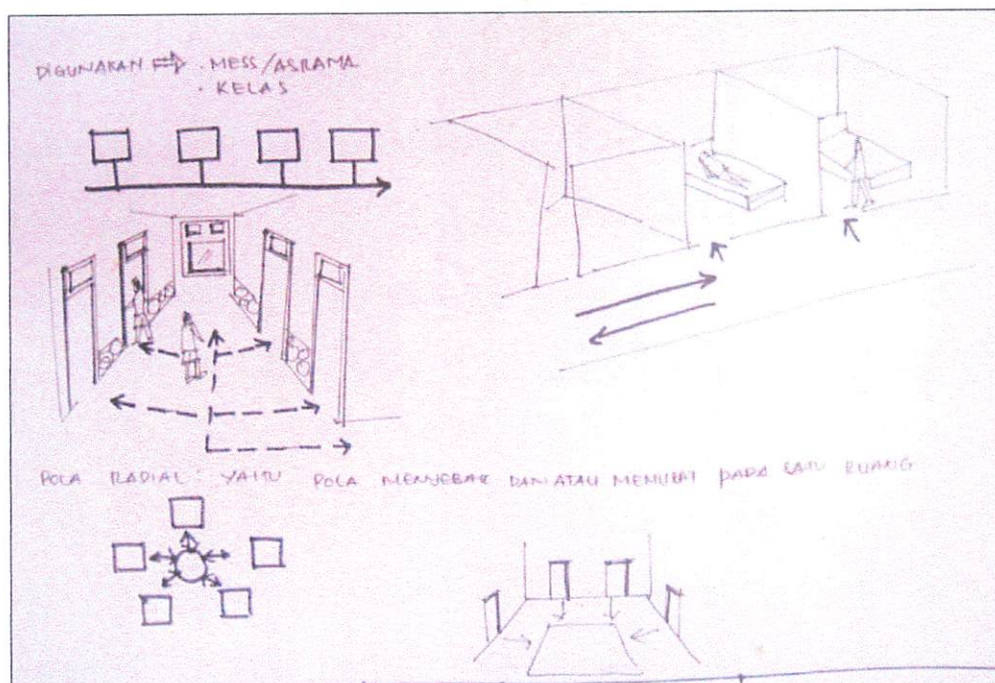 DIGUNAKAN ⇒ · MESS/ASRAMA
· KELAS
POLA RADIAL : YAITU POLA MENYEBAR DAN ATAU MEMUSAT PADA SATU RUANG